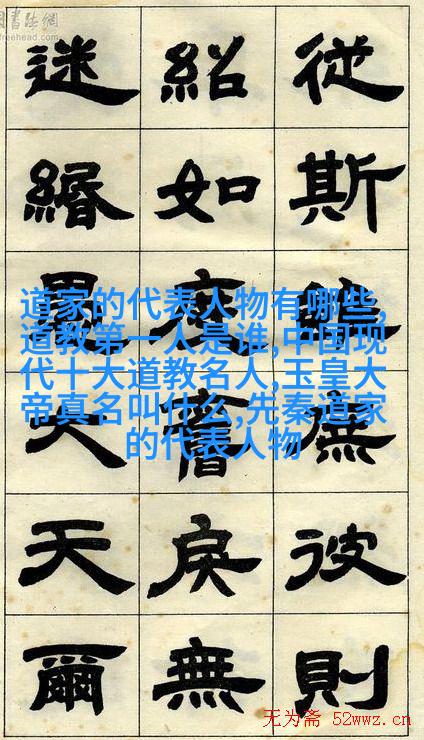 書法網
freehead.com
從斯彼則
紹如戾無
迷緡大天爾
道家的代表人物有哪些,
道教第一人是谁,中国现
代十大道教名人,玉皇大
帝真名叫什么,先秦道家
的代表人物
无为斋 52wwz.cn